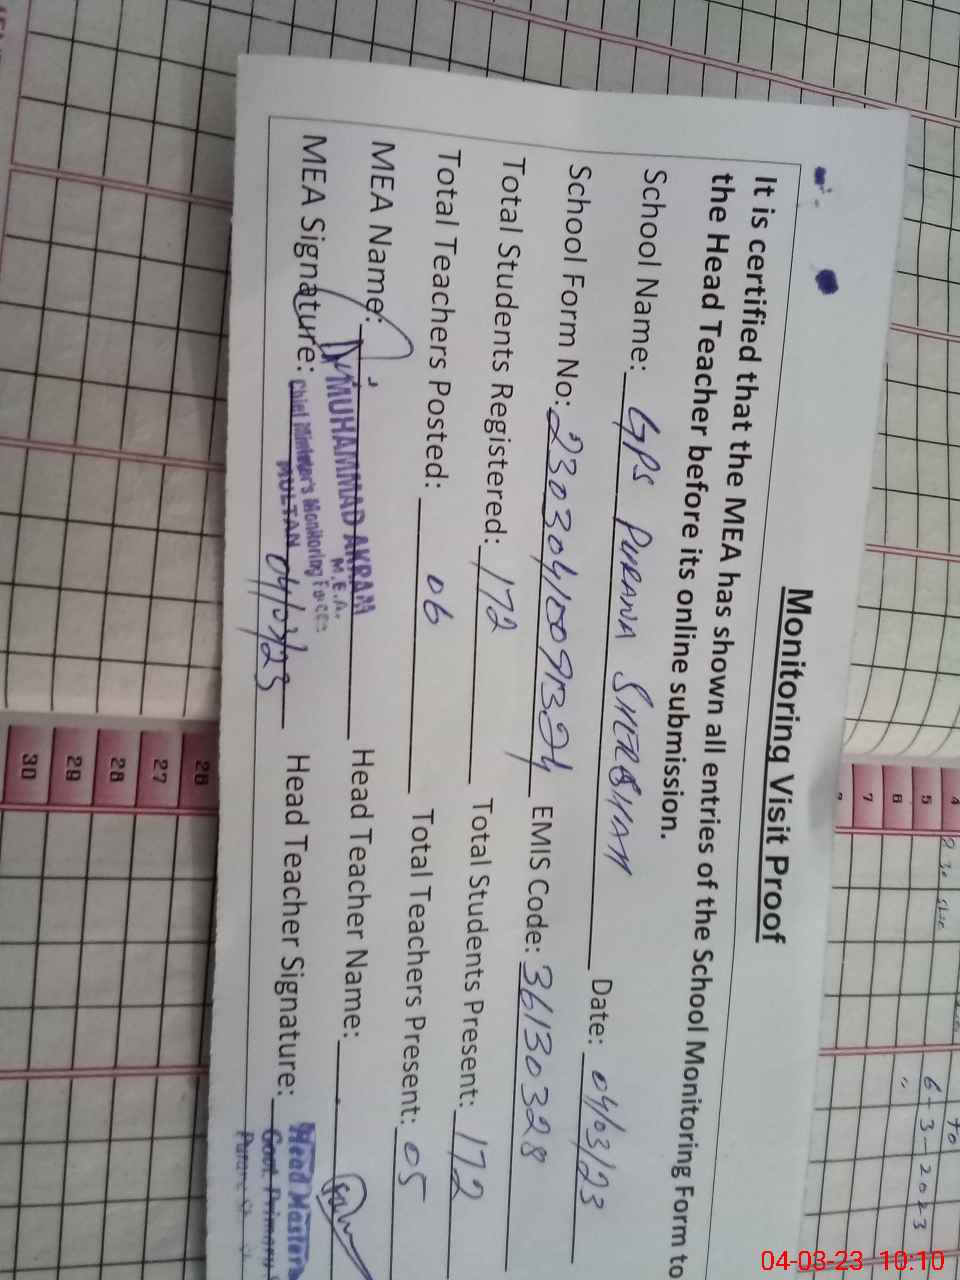 Monitoring Visit Proof
It is certified that the MEA has shown all entries of the School Monitoring Form to
the Head Teacher before its online submission.
School Name: GPS PURANA SHERSHAH Date: 04/03/23
School Form No: EMIS Code: 36130328
Total Students Registered: 172 Total Students Present: 172
Total Teachers Posted: 06 Total Teachers Present: 05
MEA Name: MUHAMMAD AKRAM Head Teacher Name:
M.E.A.
MEA Signature: Chief Minister's Monitoring Forces Head Teacher Signature: Head Master
MULTAN 04/03/23 Govt. Primary
26
27
28
29
30
4
5
6
7
to
6-3-2023
04-03-23 10:10